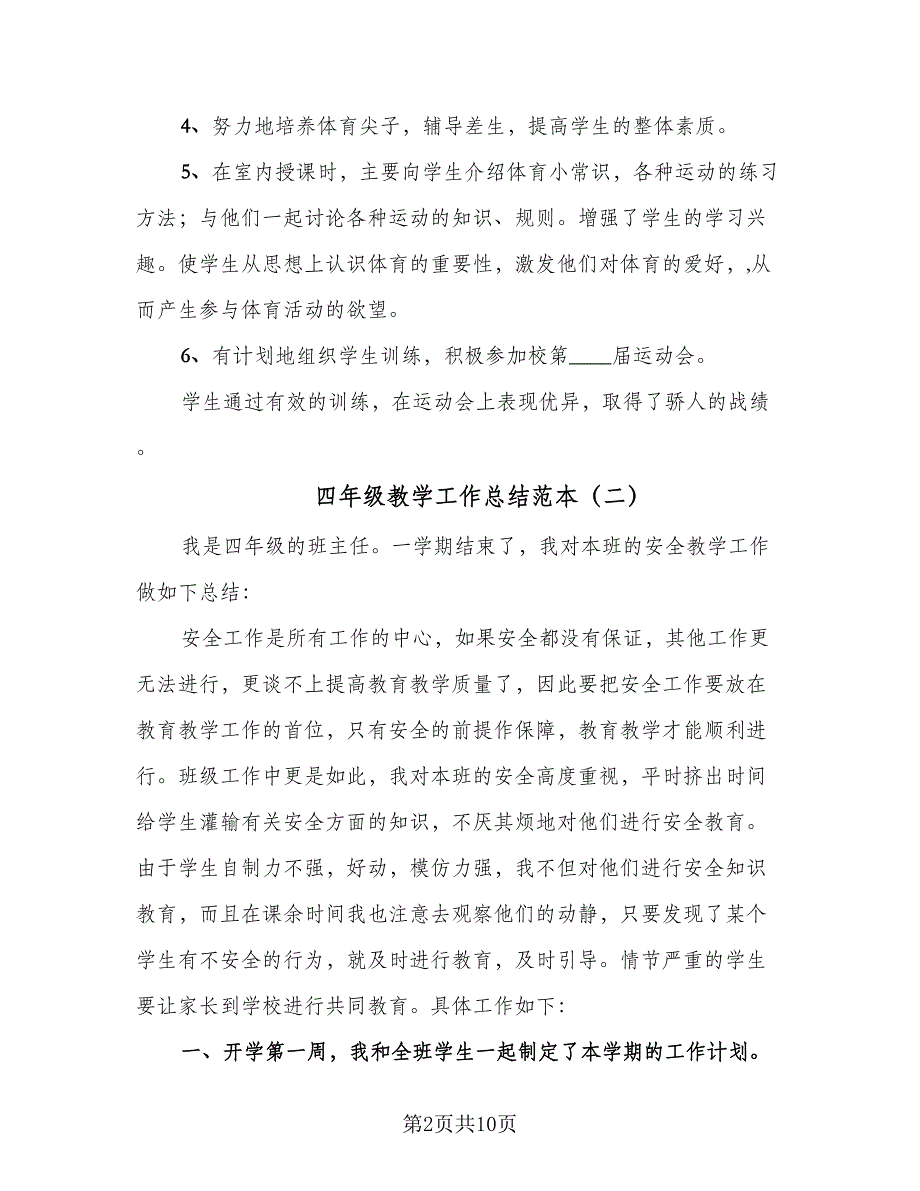 4、努力地培养体育尖子，辅导差生，提高学生的整体素质。
5、在室内授课时，主要向学生介绍体育小常识，各种运动的练习
方法；与他们一起讨论各种运动的知识、规则。增强了学生的学习兴
趣。使学生从思想上认识体育的重要性，激发他们对体育的爱好，,从
而产生参与体育活动的欲望。
6、有计划地组织学生训练，积极参加校第____届运动会。
学生通过有效的训练，在运动会上表现优异，取得了骄人的战绩
。
四年级教学工作总结范本（二）
我是四年级的班主任。一学期结束了，我对本班的安全教学工作
做如下总结：
安全工作是所有工作的中心，如果安全都没有保证，其他工作更
无法进行，更谈不上提高教育教学质量了，因此要把安全工作要放在
教育教学工作的首位，只有安全的前提作保障，教育教学才能顺利进
行。班级工作中更是如此，我对本班的安全高度重视，平时挤出时间
给学生灌输有关安全方面的知识，不厌其烦地对他们进行安全教育。
由于学生自制力不强，好动，模仿力强，我不但对他们进行安全知识
教育，而且在课余时间我也注意去观察他们的动静，只要发现了某个
学生有不安全的行为，就及时进行教育，及时引导。情节严重的学生
要让家长到学校进行共同教育。具体工作如下：
一、开学第一周，我和全班学生一起制定了本学期的工作计划。
第2页共10页